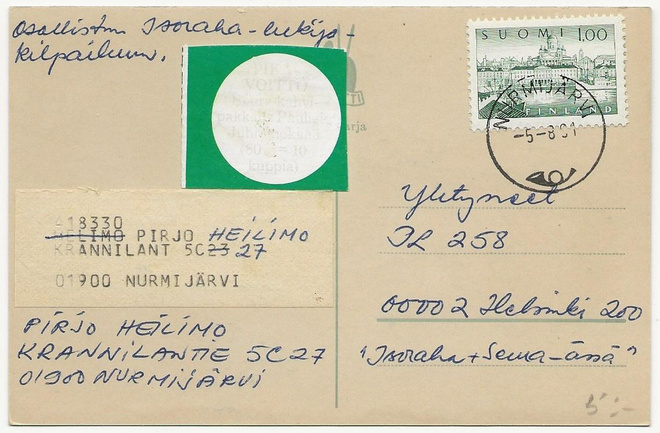 Osallistun Isoraha-lukija-
kilpailuun.
VOITTO
(80 g = 10
kuppia)
SUOMI 1,00
FINLAND
NURMIJÄRVI
-5-8 81
418330
HELIMO PIRJO HEILIMO
KRANNILANT 5C23 27
01900 NURMIJÄRVI
PIRJO HEILIMO
KRANNILANTIE 5C27
01900 NURMIJÄRVI
Yhtyneet
PL 258
00002 Helsinki 200
"Isoraha + Seura-ässä"
5:-